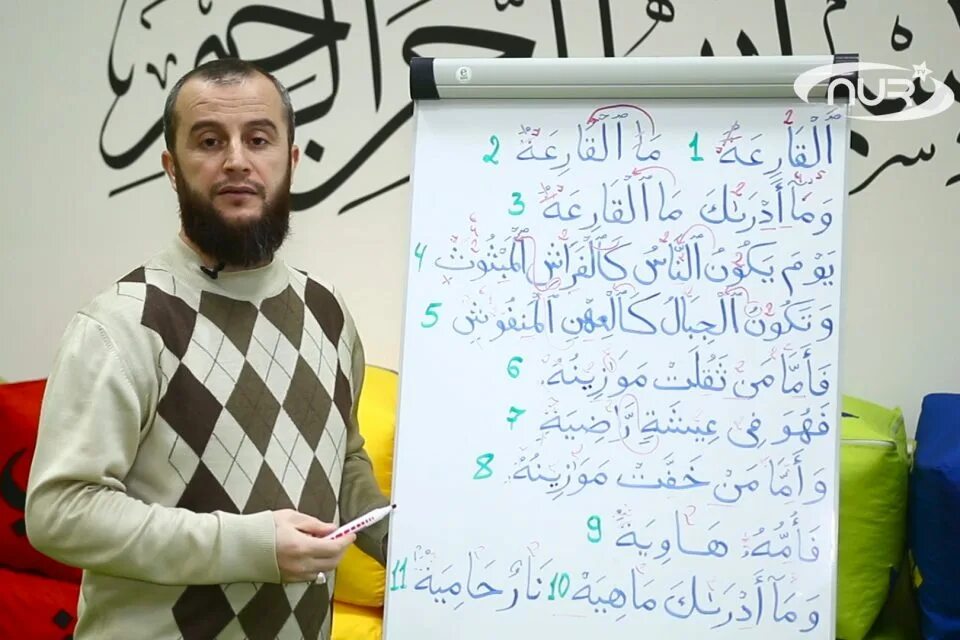 بسم الله الرحمن الرحيم
NUR
اَلْقَارِعَةُ 1 مَا الْقَارِعَةُ 2
وَمَآ أَدْرَىٰكَ مَا الْقَارِعَةُ 3
يَوْمَ يَكُونُ النَّاسُ كَالْفَرَاشِ الْمَبْثُوثِ 4
وَتَكُونُ الْجِبَالُ كَالْعِهْنِ الْمَنْفُوشِ 5
فَأَمَّا مَنْ ثَقُلَتْ مَوَٰزِينُهُ 6
فَهُوَ فِي عِيشَةٍ رَّاضِيَةٍ 7
وَأَمَّا مَنْ خَفَّتْ مَوَٰزِينُهُ 8
فَأُمُّهُ هَاوِيَةٌ 9
وَمَآ أَدْرَىٰكَ مَاهِيَهْ 10 نَارٌ حَامِيَةٌ 11